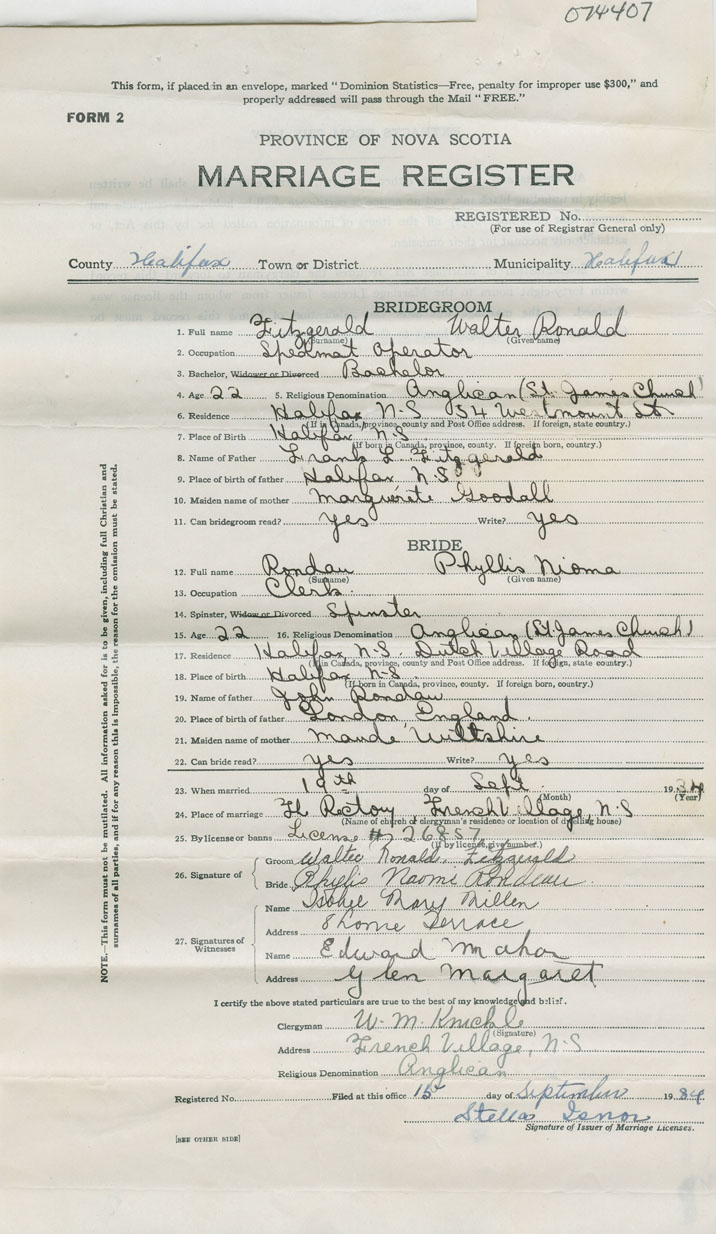 074407
This form, if placed in an envelope, marked "Dominion Statistics—Free, penalty for improper use $300," and
properly addressed will pass through the Mail "FREE."
FORM 2
PROVINCE OF NOVA SCOTIA
MARRIAGE REGISTER
REGISTERED No.
(For use of Registrar General only)
County Halifax Town or District Municipality Halifax
BRIDEGROOM
1. Full name Fitzgerald Walter Ronald
(Surname) (Given name)
2. Occupation Spedmat Operator
3. Bachelor, Widower or Divorced Bachelor
4. Age 22 5. Religious Denomination Anglican (St. James Church)
6. Residence Halifax N-S 54 Westmount St.
(If in Canada, province, county and Post Office address. If foreign, state country.)
7. Place of Birth Halifax N-S
(If born in Canada, province, county. If foreign born, country.)
8. Name of Father Frank L. Fitzgerald
9. Place of birth of father Halifax N-S
10. Maiden name of mother Marguerete Goodall
11. Can bridegroom read? yes Write? yes
BRIDE
12. Full name Rondau Phyllis Nioma
(Surname) (Given name)
13. Occupation Clerk
14. Spinster, Widow or Divorced Spinster
15. Age 22 16. Religious Denomination Anglican (St. James Church)
17. Residence Halifax N-S. Dutch Village Road
(If in Canada, province, county and Post Office address. If foreign, state country.)
18. Place of Birth Halifax N.S.
(If born in Canada, province, county. If foreign born, country.)
19. Name of father John Rondau
20. Place of birth of father London, England.
21. Maiden name of mother Maude Wiltshire
22. Can bride read? yes Write? yes
23. When married 19th day of Sept 1934
(Month) (Year)
24. Place of marriage Rectory French Village, N-S
(Name of church or clergyman's residence or location of dwelling house)
25. By license or banns License # 26857
(If by license, give number.)
26. Signature of
Groom Walter Ronald Fitzgerald
Bride Phylis Naomi Rondeau
27. Signatures of Witnesses
Name Mary Millen
Address 8 Lorne Terrace
Name Edward Mahar
Address Glen Margaret
I certify the above stated particulars are true to the best of my knowledge and belief.
Clergyman W. M. Knickle
(Signature)
Address French Village, N-S
Religious Denomination Anglican
Registered No. Filed at this office 15 day of September 1934
Stella Isnor
Signature of Issuer of Marriage Licenses.
[SEE OTHER SIDE]
NOTE.—This form must not be mutilated. All information asked for is to be given, including full Christian and
surnames of all parties, and if for any reason this is impossible, the reason for the omission must be stated.